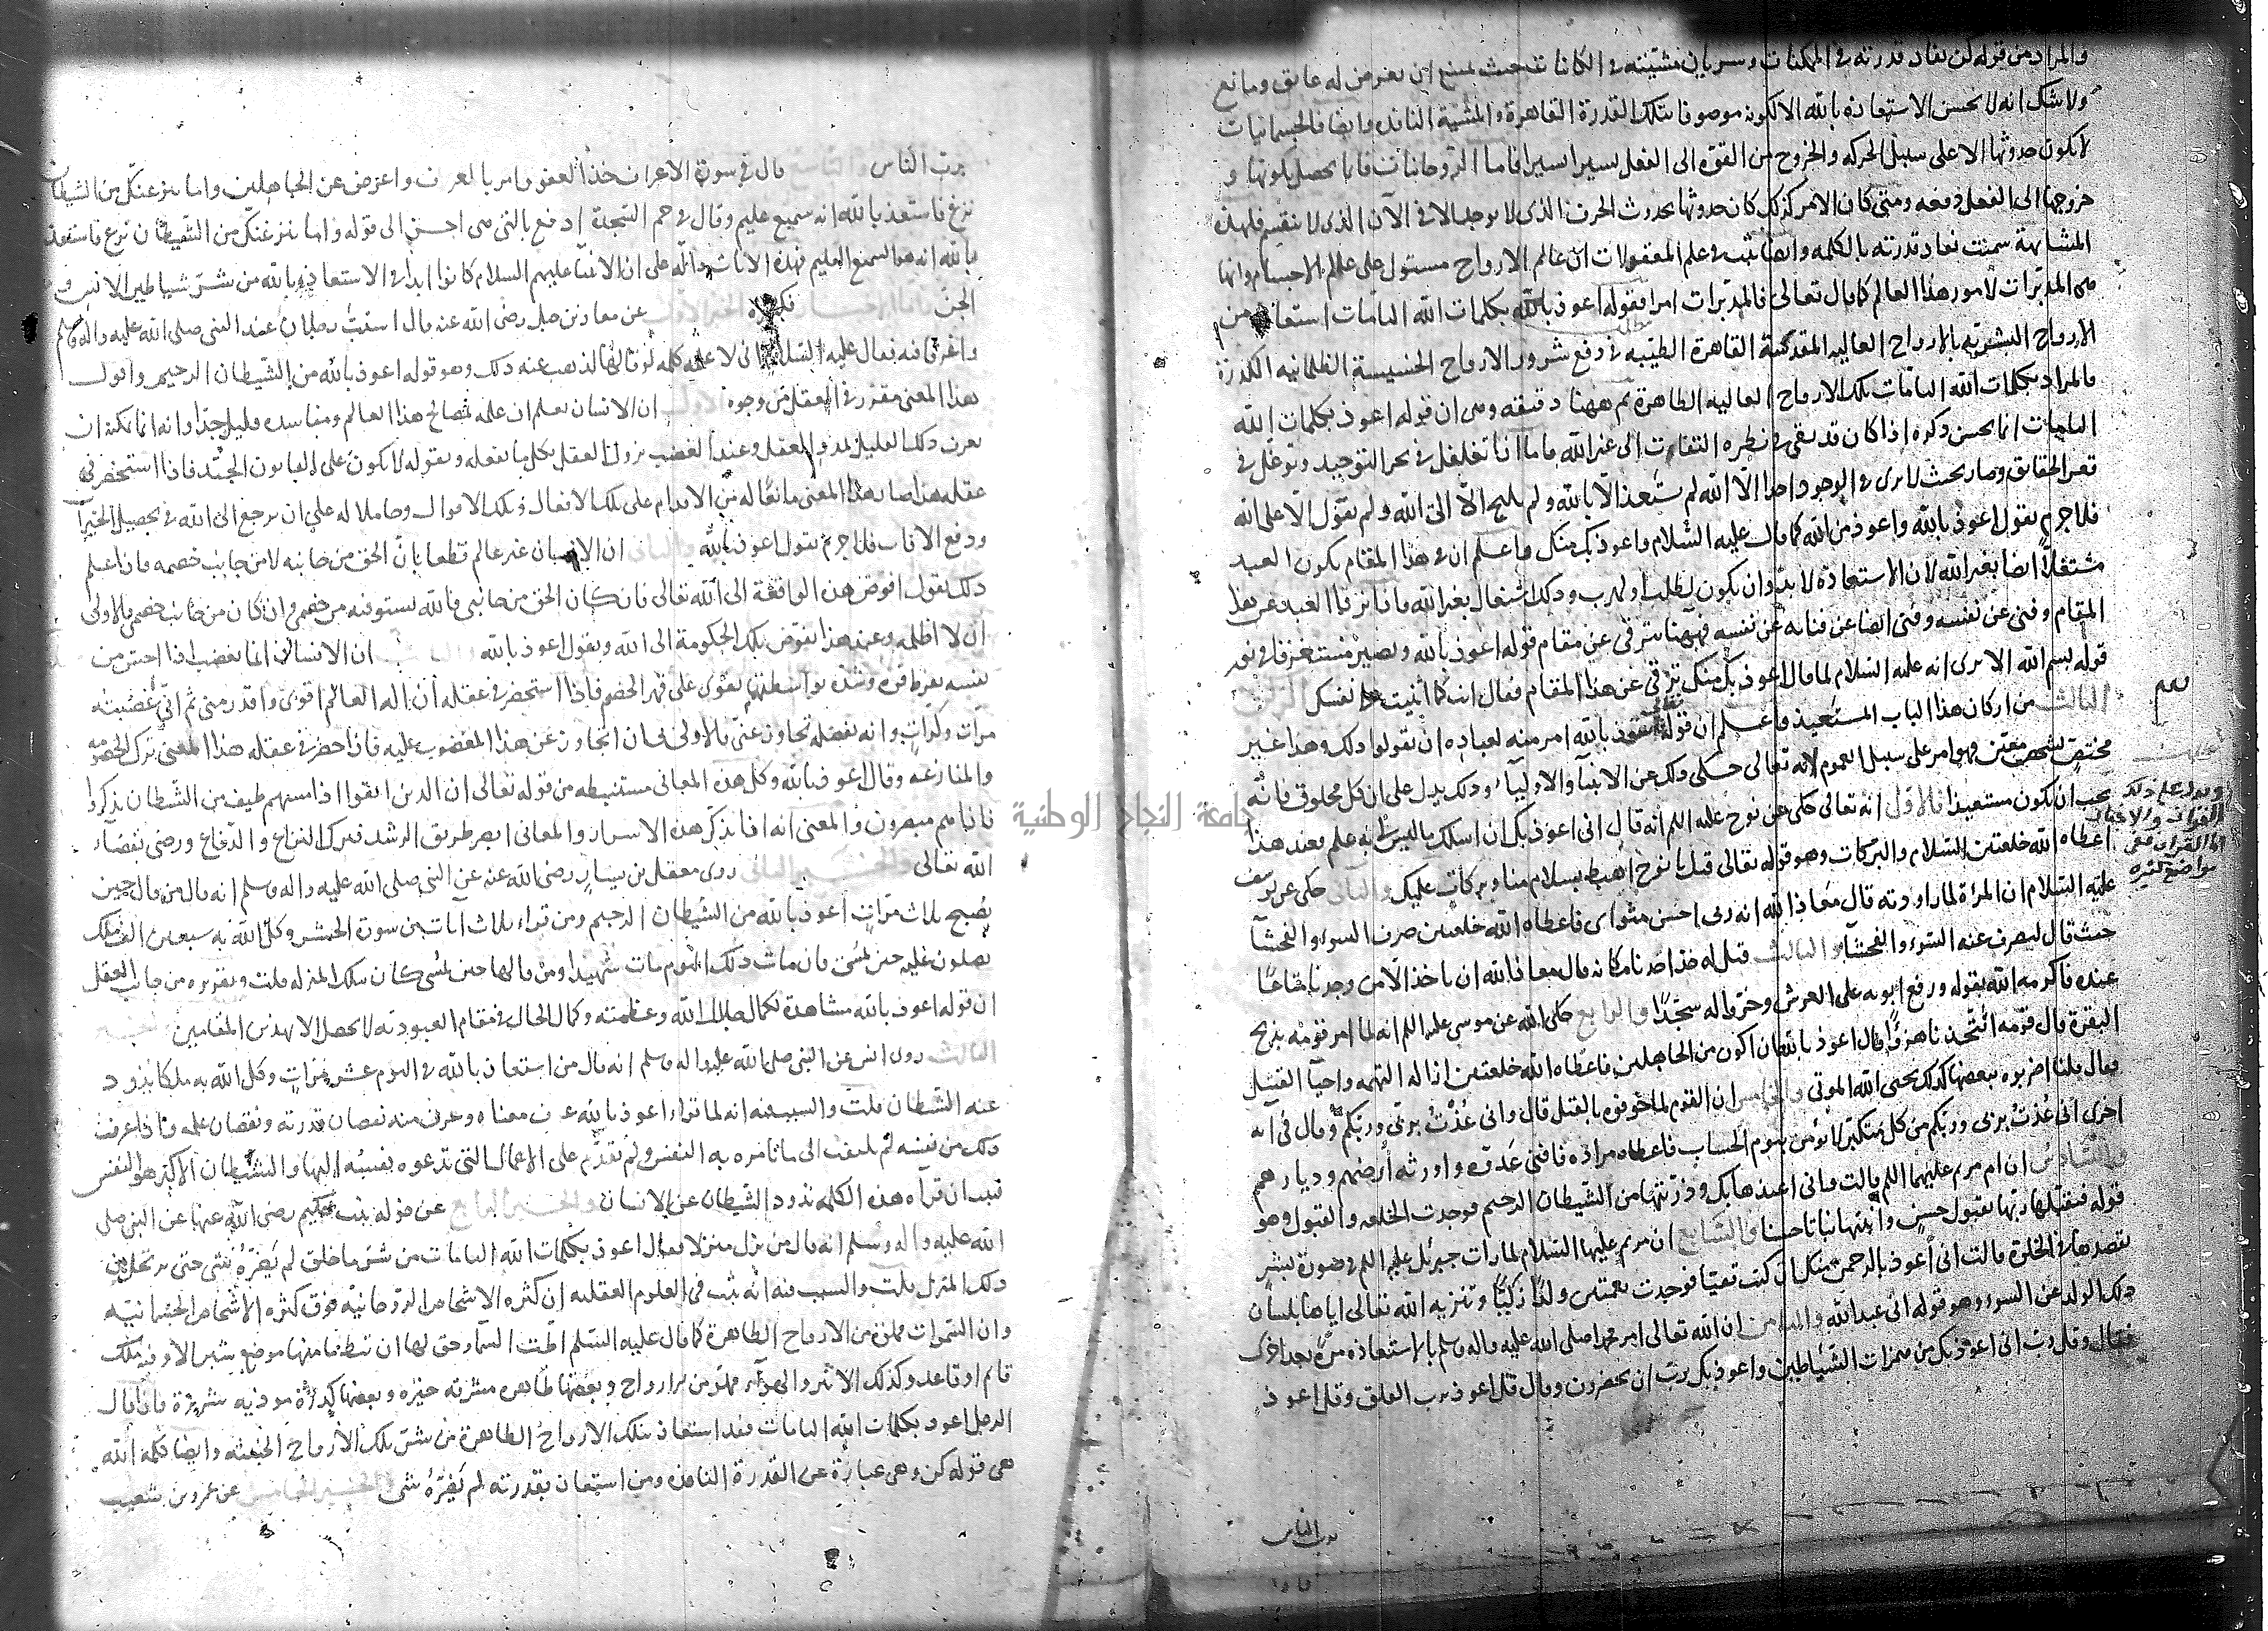 والمراد من قوله كن نفاذ قدرته في الممكنات وسريان مشيته في الكائنات بحيث يمتنع ان يعرض له عايق ومانع
ولا شك انه لا يحسن الاستعاذة بالله الا لكونه موصوفا بتلك القدرة القاهرة والمشية النافذه وايضا فالجسمانيات
لا يكون حدوثها الا على سبيل الحركه والخروج من القوة الى الفعل يسيرا يسيرا فاما الروحانيات فانما يحصل تكونها و
خروجها الى الفعل دفعه ومتى كان الامر كذلك كان حدوثها كحدوث الحرف الذي لا يوجد الا في الآن الذي لا ينقسم فلهذه
المشابهة سميت نفاذ قدرته بالكلمه وايضا ثبت في علم المعقولات ان عالم الارواح مستول على عالم الاجسام وانها
هي المدبرات لامور هذا العالم كما قال تعالى فالمدبرات امرا فقوله اعوذ بالله بكلمات الله التامات استعاذة من
الارواح البشريه بالارواح العاليه المقدسة القاهرة الطيبه في دفع شرور الارواح الخبيسة الظلمانيه الكدرة
فالمراد بكلمات الله التامات تلك الارواح العاليه الطاهرة ثم ههنا دقيقه وهي ان قوله اعوذ بكلمات الله
التامات انما يحسن ذكره اذا كان قد بقي في نظره التفات الى غير الله فاما اذا تغلغل في بحر التوحيد وتوغل في
قعر الحقايق وصار بحيث لا يرى في الوجود احدا الا الله لم يستعذ الا بالله ولم يلتج الا الى الله ولم يعول الا على الله
فلا جرم يقول اعوذ بالله واعوذ من الله كما قال عليه السلام واعوذ بك منك واعلم ان في هذا المقام يكون العبد
مشتغلا ايضا بغير الله لان الاستعاذة لا بد وان يكون لطلب او لهرب وذلك اشتغال بغير الله فاذا ترقا العبد عن هذا
المقام وفنى عن نفسه وفنى ايضا عن فنائه عن نفسه فههنا يترقى عن مقام قوله اعوذ بالله ويصير مستغرقا في نور
قوله بسم الله الا ترى انه عليه السلام لما قال اعوذ بك منك ترقى عن هذا المقام فقال انت كما اثنيت على نفسك الركن
الثالث من اركان هذا الباب المستعيذ فاعلم ان قوله اعوذ بالله امر منه لعباده ان يقولوا ذلك وهذا غير
مختص لشخص معين فهو امر على سبيل العموم لانه تعالى حكى ذلك عن الانبيا والاوليا وذلك يدل على ان كل مخلوق فانه
يجب ان يكون مستعيذا فالاول انه تعالى حكى عن نوح عليه اللم انه قال اني اعوذ بك ان اسئلك ما ليس لي به علم فعند هذا
اعطاه الله خلعتين السلام والبركات وهو قوله تعالى قيل يا نوح اهبط بسلام منا وبركات عليك والثاني حكى عن يوسف
عليه السلام ان المرأة لما راودته قال معاذ الله انه ربي احسن مثواي فاعطاه الله خلعتين صرف السوء والفحشآ
حيث قال لنصرف عنه السوء والفحشآء والثالث قيل له خذ احدنا مكانه قال معاذ الله ان ناخذ الا من وجدنا متاعنا
عنده فاكرمه الله بقوله ورفع ابويه على العرش وخروا له سجدا والرابع حكى الله عن موسى عليه اللم انه لما امر قومه بذبح
البقرة قال قومه اتتخذنا هزوا قال اعوذ بالله ان اكون من الجاهلين فاعطاه الله خلعتين ازاله التهمه واحيآ القتيل
فقال فقلنا اضربوه ببعضها كذلك يحيى الله الموتى والخامس ان القوم لما خوفوه بالقتل قال واني عذت بربي وربكم وقال في آيه
اخرى اني عذت بربي وربكم من كل متكبر لا يؤمن بيوم الحساب فاعطاه مراده فافنى عدوه واورثه ارضهم وديارهم
والسادس ان ام مريم عليهما اللم قالت واني اعيذها بك وذريتها من الشيطان الرجيم فوجدت الخلعه والقبول وهو
قوله فتقبلها ربها بقبول حسن وانبتها نباتا حسنا والسابع ان مريم عليها السلام لما رات جبرئيل عليه اللم في صورة بشر
يقصدها في الخلوة قالت اني اعوذ بالرحمن منك ان كنت تقيا فوجدت نعمتين ولدا زكيا وتنزيه الله تعالى اياها بلسان
ذلك الولد عن السوء وهو قوله اني عبد الله والثامن ان الله تعالى امر محمدا صلى الله عليه واله وسلم بالاستعاذه مرة بعد اخرى
فقال وقل رب اني اعوذ بك من همزات الشياطين واعوذ بك رب ان يحضرون وقال قل اعوذ برب الفلق وقل اعوذ
مواضع كثيره
برب الناس
جامعة النجاح الوطنية
برب الناس والتاسع قال في سورة الاعراف خذ العفو وامر بالعرف واعرض عن الجاهلين واما ينزغنك من الشيطان
نزغ فاستعذ بالله انه سميع عليم وقال في حم السجدة ادفع بالتي هي احسن الى قوله واما ينزغنك من الشيطان نزغ فاستعذ
بالله انه هو السميع العليم فهذه الآيات دالة على ان الانبيآ عليهم السلام كانوا ابدا في الاستعاذة بالله من شر شياطين الانس و
الجن واما الاخبار فكثيره الخبر الاول عن معاذ بن جبل رضي الله عنه قال استب رجلان عند النبي صلى الله عليه واله وسلم
واغرقا فيه فقال عليه السلام اني لاعلم كلمه لو قالها لذهب عنه ذلك وهو قوله اعوذ بالله من الشيطان الرجيم واقول
هذا المعنى مقرر في العقل من وجوه الاول ان الانسان يعلم ان علمه بمصالح هذا العالم ومفاسده قليل جدا وانه انما يمكنه ان
يعرف ذلك القليل بمدد العقل وعند الغضب يزول العقل فكل ما يفعله ويقوله لا يكون على القانون الجيد فاذا استحضر في
عقله هذا صار هذا المعنى مانعا له من الاقدام على تلك الافعال وتلك الاقوال وحاملا له على ان يرجع الى الله في تحصيل الخيرات
ودفع الافات فلا جرم يقول اعوذ بالله والثاني ان الانسان غير عالم قطعا بان الحق من جانبه لا من جانب خصمه فاذا علم
ذلك يقول افوض هذه الواقعة الى الله تعالى فان كان الحق من جانبي فالله يستوفيه من خصمي وان كان من جانب خصمي فالاولى
ان لا اظلمه وعند هذا يفوض تلك الحكومة الى الله ويقول اعوذ بالله والثالث ان الانسان انما يغضب اذا احس من
نفسه بفرط قوة وشدة بواسطتها يقوى على قهر الخصم فاذا استحضر في عقله ان اله العالم اقوى واقدر مني ثم اني عصيته
مرات وكرات وانه بفضله تجاوز عني فالاولى لي ان اتجاوز عن هذا المغضوب عليه فاذا احضر في عقله هذا المعنى ترك الخصومه
والمنازعه وقال اعوذ بالله وكل هذه المعاني مستنبطه من قوله تعالى ان الذين اتقوا اذا مسهم طيف من الشيطان تذكروا
فاذا هم مبصرون والمعنى انه اذا تذكر هذه الاسرار والمعاني ابصر طريق الرشد فترك النزاع والدفاع ورضي بقضآء
الله تعالى والخبر الثاني روى معقل بن يسار رضي الله عنه عن النبي صلى الله عليه واله وسلم انه قال من قال حين
يصبح ثلاث مرات اعوذ بالله من الشيطان الرجيم ومن قراء ثلاث آيات من سورة الحشر وكل الله به سبعين الف ملك
يصلون عليه حتى يمسى فان مات ذلك اليوم مات شهيدا ومن قالها حين يمسى كان بتلك المنزله قلت وتقريره من جانب العقل
ان قوله اعوذ بالله مشاهدة لكمال جلال الله وعظمته وكمال الحال في مقام العبوديه لا يحصل الا بهذين المقامين الخبر
الثالث روى انس عن النبي صلى الله عليه واله وسلم انه قال من استعاذ بالله في اليوم عشر مرات وكل الله به ملكا يذود
عنه الشيطان قلت والسبب فيه انه لما قرا اعوذ بالله عرف معناه وعرف منه نقصان قدرته ونقصان علمه واذا عرف
ذلك من نفسه لم يلتفت الى ما تامره به النفس ولم تقدم على الاعمال التي تدعوه نفسه اليها والشيطان الاكبر هو النفس
فثبت ان قرآه هذه الكلمه تذود الشيطان عن الانسان والخبر الرابع عن خوله بنت حكيم رضي الله عنها عن النبي صلى
الله عليه واله وسلم انه قال من نزل منزلا فقال اعوذ بكلمات الله التامات من شر ما خلق لم يضره شئ حتى يرتحل من
ذلك المنزل قلت والسبب فيه انه ثبت في العلوم العقليه ان كثرة الاشخاص الروحانيه فوق كثره الاشخاص الجسمانيه
وان السموات مملوة من الارواح الطاهرة كما قال عليه السلم اطت السمآ وحق لها ان تئط ما منها موضع شبر الا وفيه ملك
قائم او قاعد وكذلك الاثير والهوآء مملو من الارواح وبعضها طاهره مشرقه خيره وبعضها كدرة موذيه شريرة فاذا قال
الرجل اعوذ بكلمات الله التامات فقد استعاذ بتلك الارواح الطاهرة من شر تلك الارواح الخبيثه وايضا كلمه الله
هي قوله كن وهي عبارة عن القدرة النافذه ومن استعاذ بقدرته لم يضره شئ والخبر الخامس عن عمرو بن شعيب